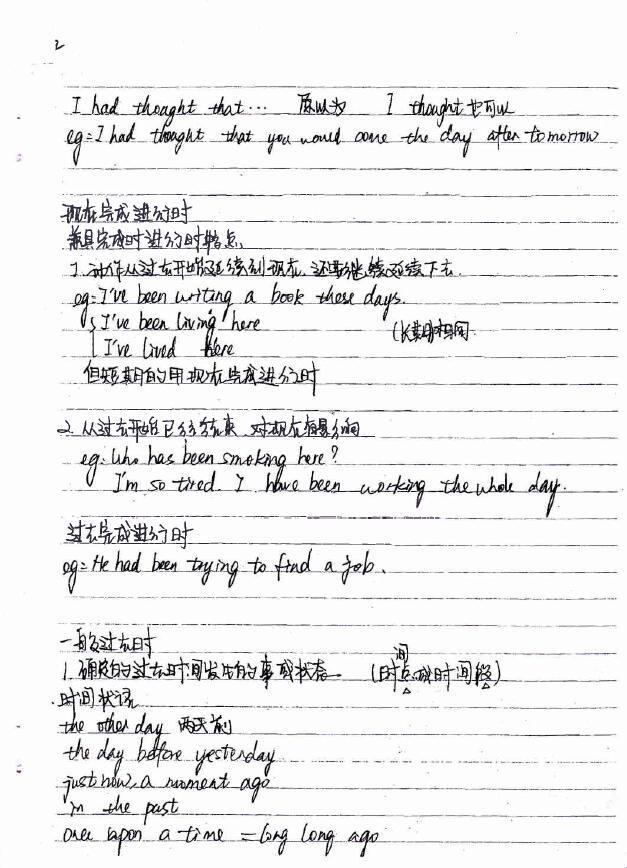 2
I had thought that... 原以为 I thought 也可以
eg: I had thought that you would come the day after tomorrow
现在完成进行时
兼具完成时进行时特点,
1. 动作从过去开始延续到现在, 还要继续延续下去.
eg: I've been writing a book these days.
{ I've been living here
I've lived here (长期)相同.
但短期的用现在完成进行时
2. 从过去开始已经结束, 对现在有影响
eg: Who has been smoking here?
I'm so tired. I have been working the whole day.
过去完成进行时
eg: He had been trying to find a job.
一般过去时
1. 确定的过去时间发生的事或状态. (时间点或时间段)
时间状语
the other day 两天前
the day before yesterday
just now, a moment ago
in the past
once upon a time = long long ago